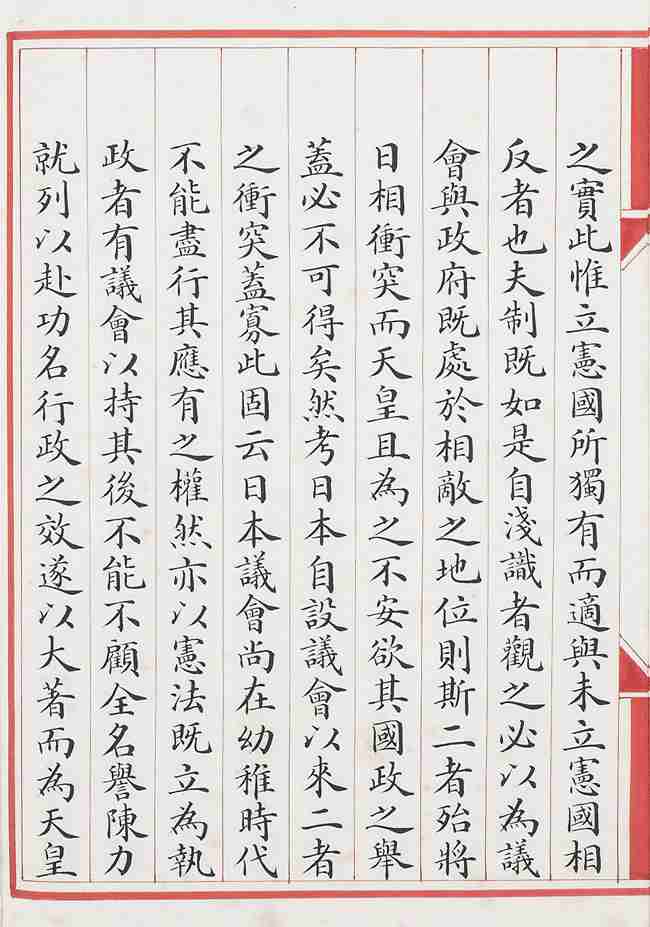 之實此惟立憲國所獨有而適與未立憲國相
反者也夫制既如是自淺識者觀之必以為議
會與政府既處於相敵之地位則斯二者殆將
日相衝突而天皇且為之不安欲其國政之舉
蓋必不可得矣然考日本自設議會以來二者
之衝突蓋寡此固云日本議會尚在幼稚時代
不能盡行其應有之權然亦以憲法既立為執
政者有議會以持其後不能不顧全名譽陳力
就列以赴功名行政之效遂以大著而為天皇